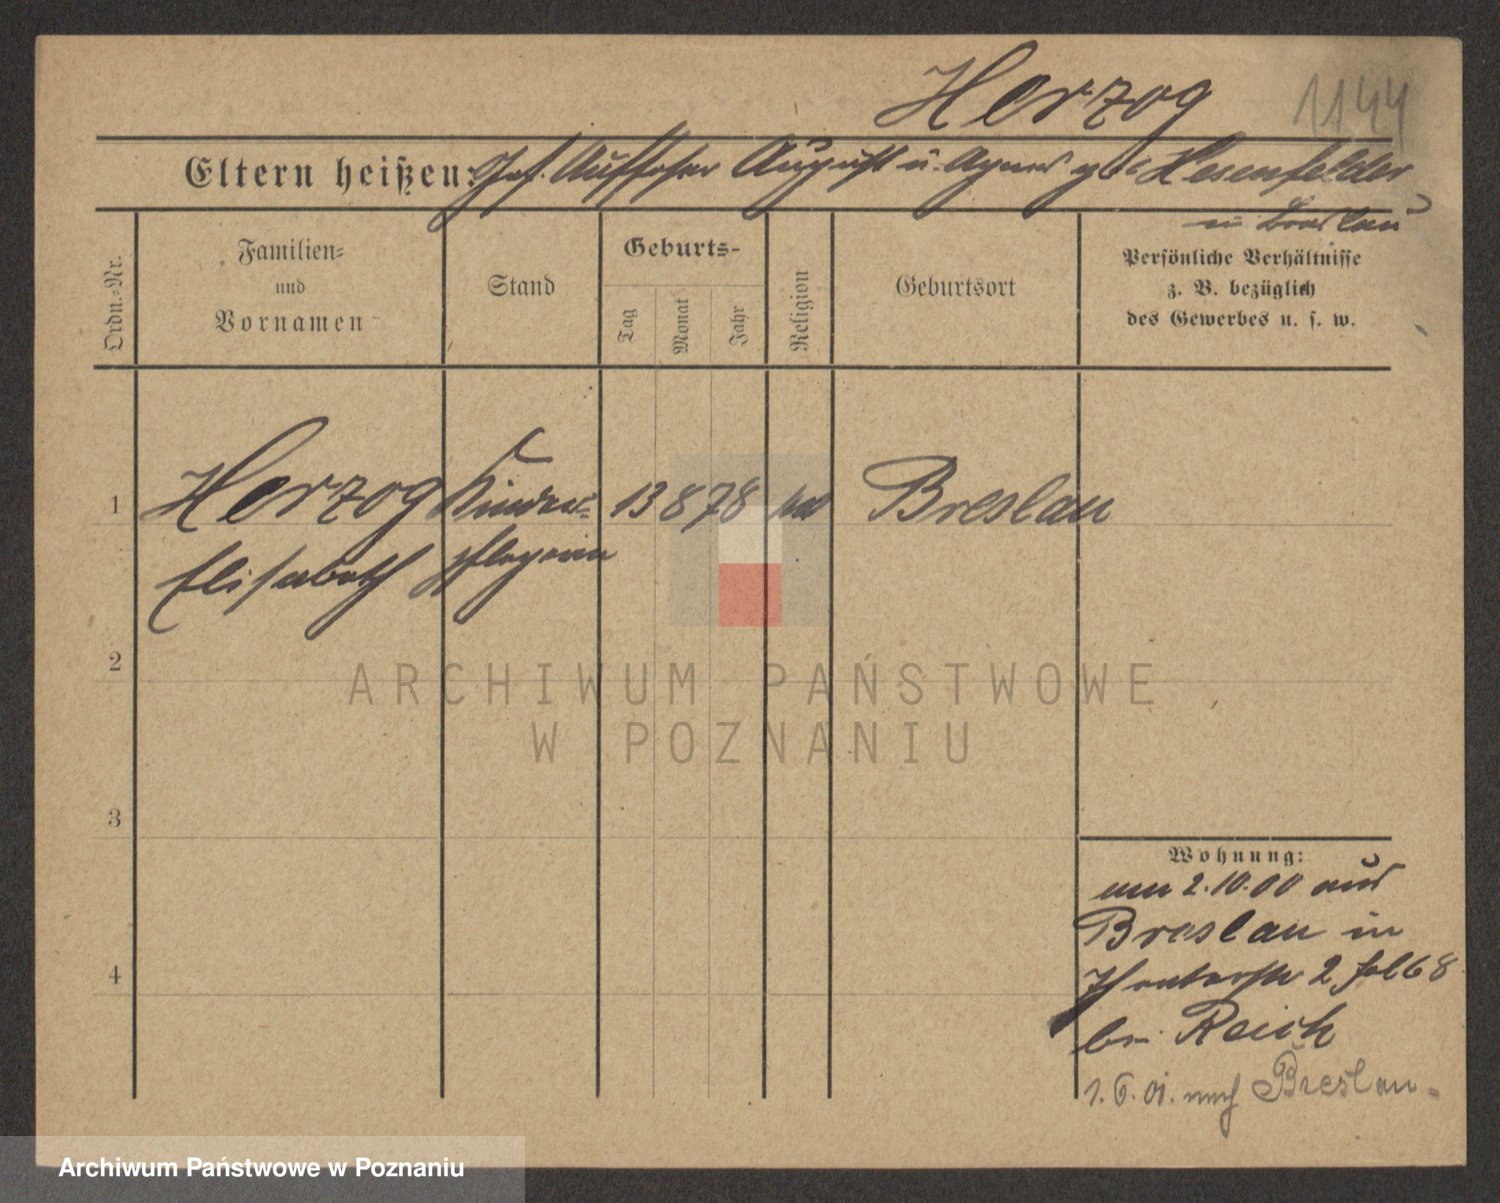 Herzog 1144
Eltern heißen: August u. Agnes geb. Hesenfelder
in Breslau
Ordn.=Nr.
Familien=
und
Vornamen
Stand
Geburts-
Tag
Monat
Jahr
Religion
Geburtsort
Persönliche Verhältnisse
z. B. bezüglich
des Gewerbes u. s. w.
1 Herzog Kinder= 13 8 78 Breslau
Elisabeth pflegerin
2
ARCHIWUM PAŃSTWOWE
W POZNANIU
3
4
Wohnung:
am 2.10.00 aus
Breslau in
Theaterstr 2 fol 68
bei Reich
1.6.01. nach Breslau.
Archiwum Państwowe w Poznaniu